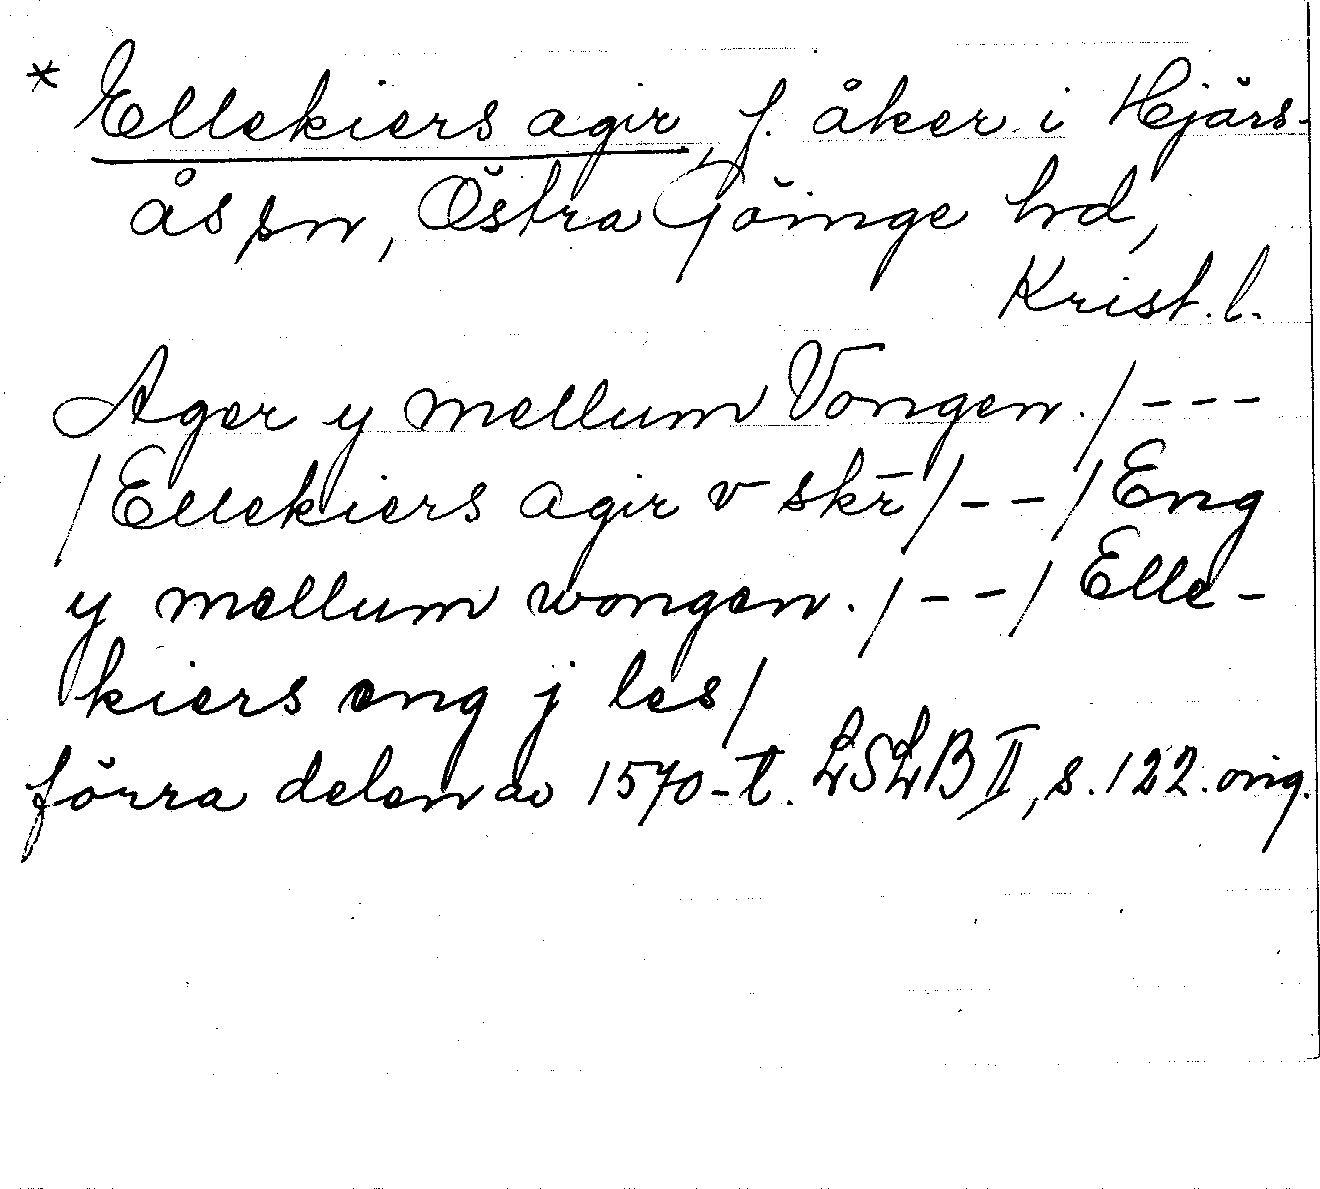 * Ellekiers agir, f. åker i Hjärs-
ås sn, Östra Göinge hd,
Krist. l.
Ager y mellum Vongen. / - - -
/ Ellekiers agir v skr̄ / - - / Eng
y mellum wongen. / - - / Elle-
kiers eng j les /
förra delen av 1570-t. LSLB II, s. 122. orig.